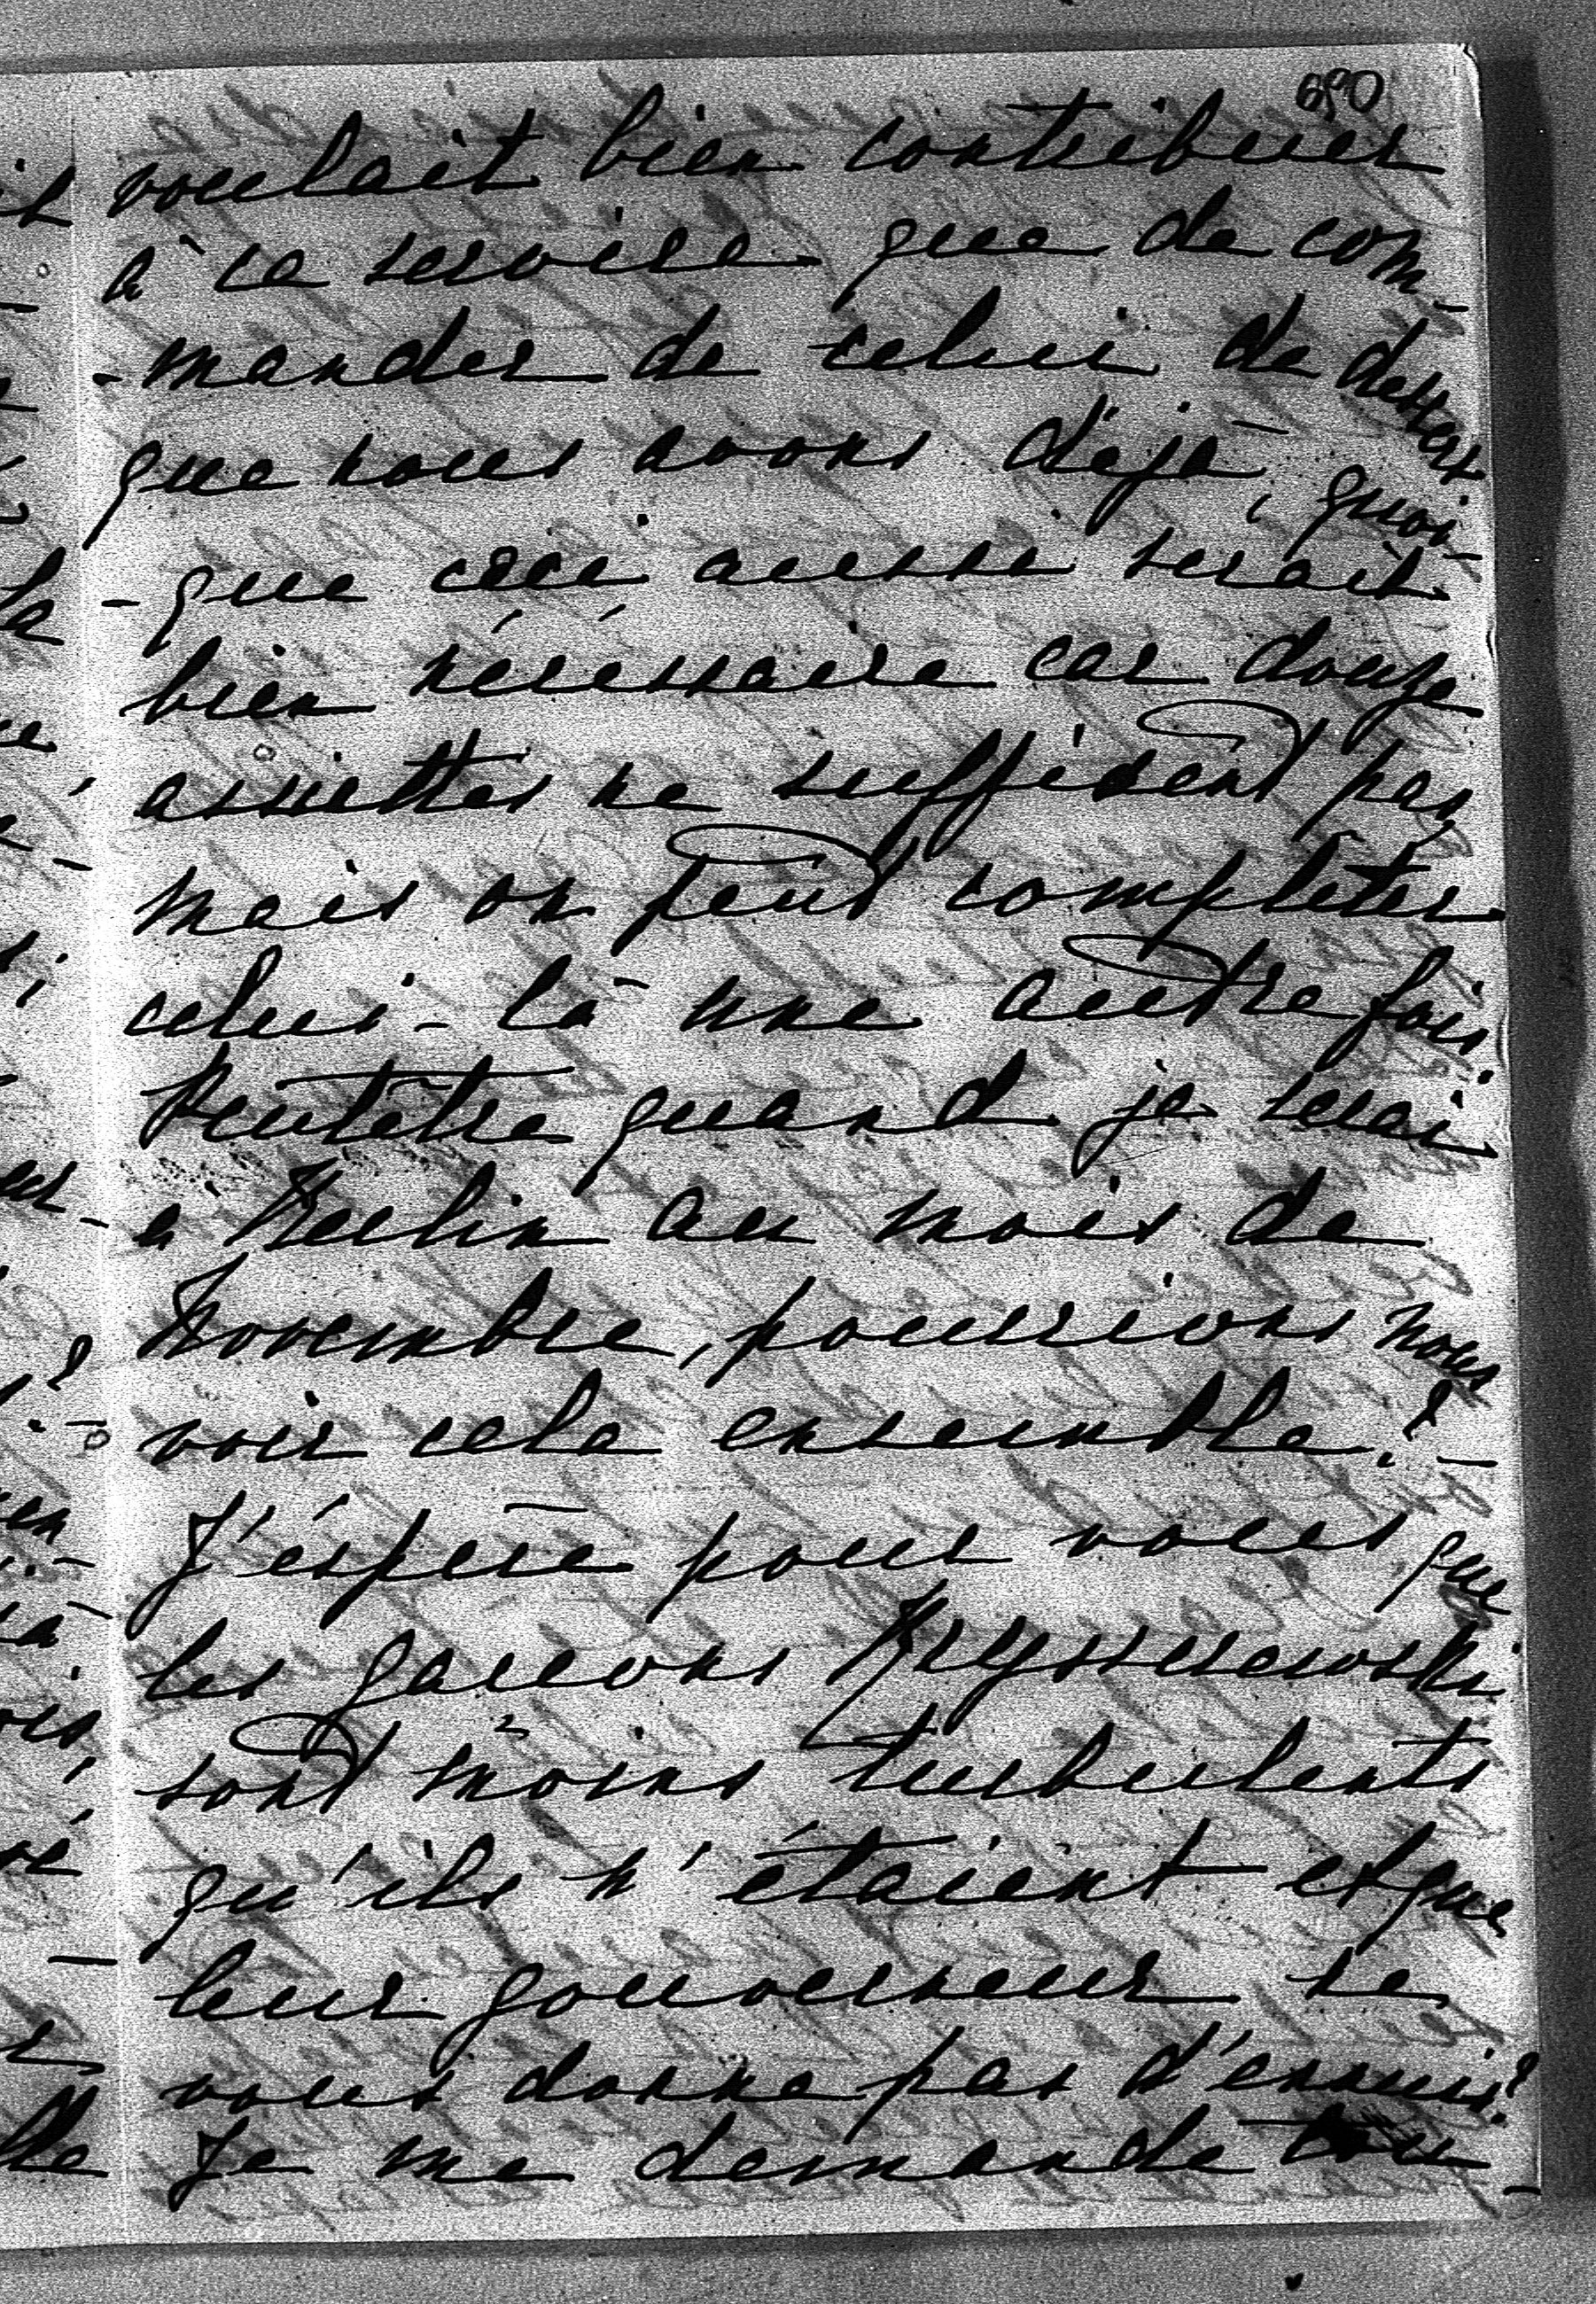 690
voulait bien contribuer
à ce service que de com-
-mander de celui de dessert
que nous avons déjà, quoi-
-que ceci aussi serait
bien nécessaire car douze
assiettes ne suffisent pas
mais on peut complèter
celui-là une autre fois
peutêtre quand je serai
à Berlin au mois de
Novembre, pourrions nous
voir cela ensemble? -
J'éspère pour vous que
les garcons
sont moins turbulents
qu'ils n'étaient et que
leur gouverneur ne
vous donne pas d'ennuis?
Je me demande tou-